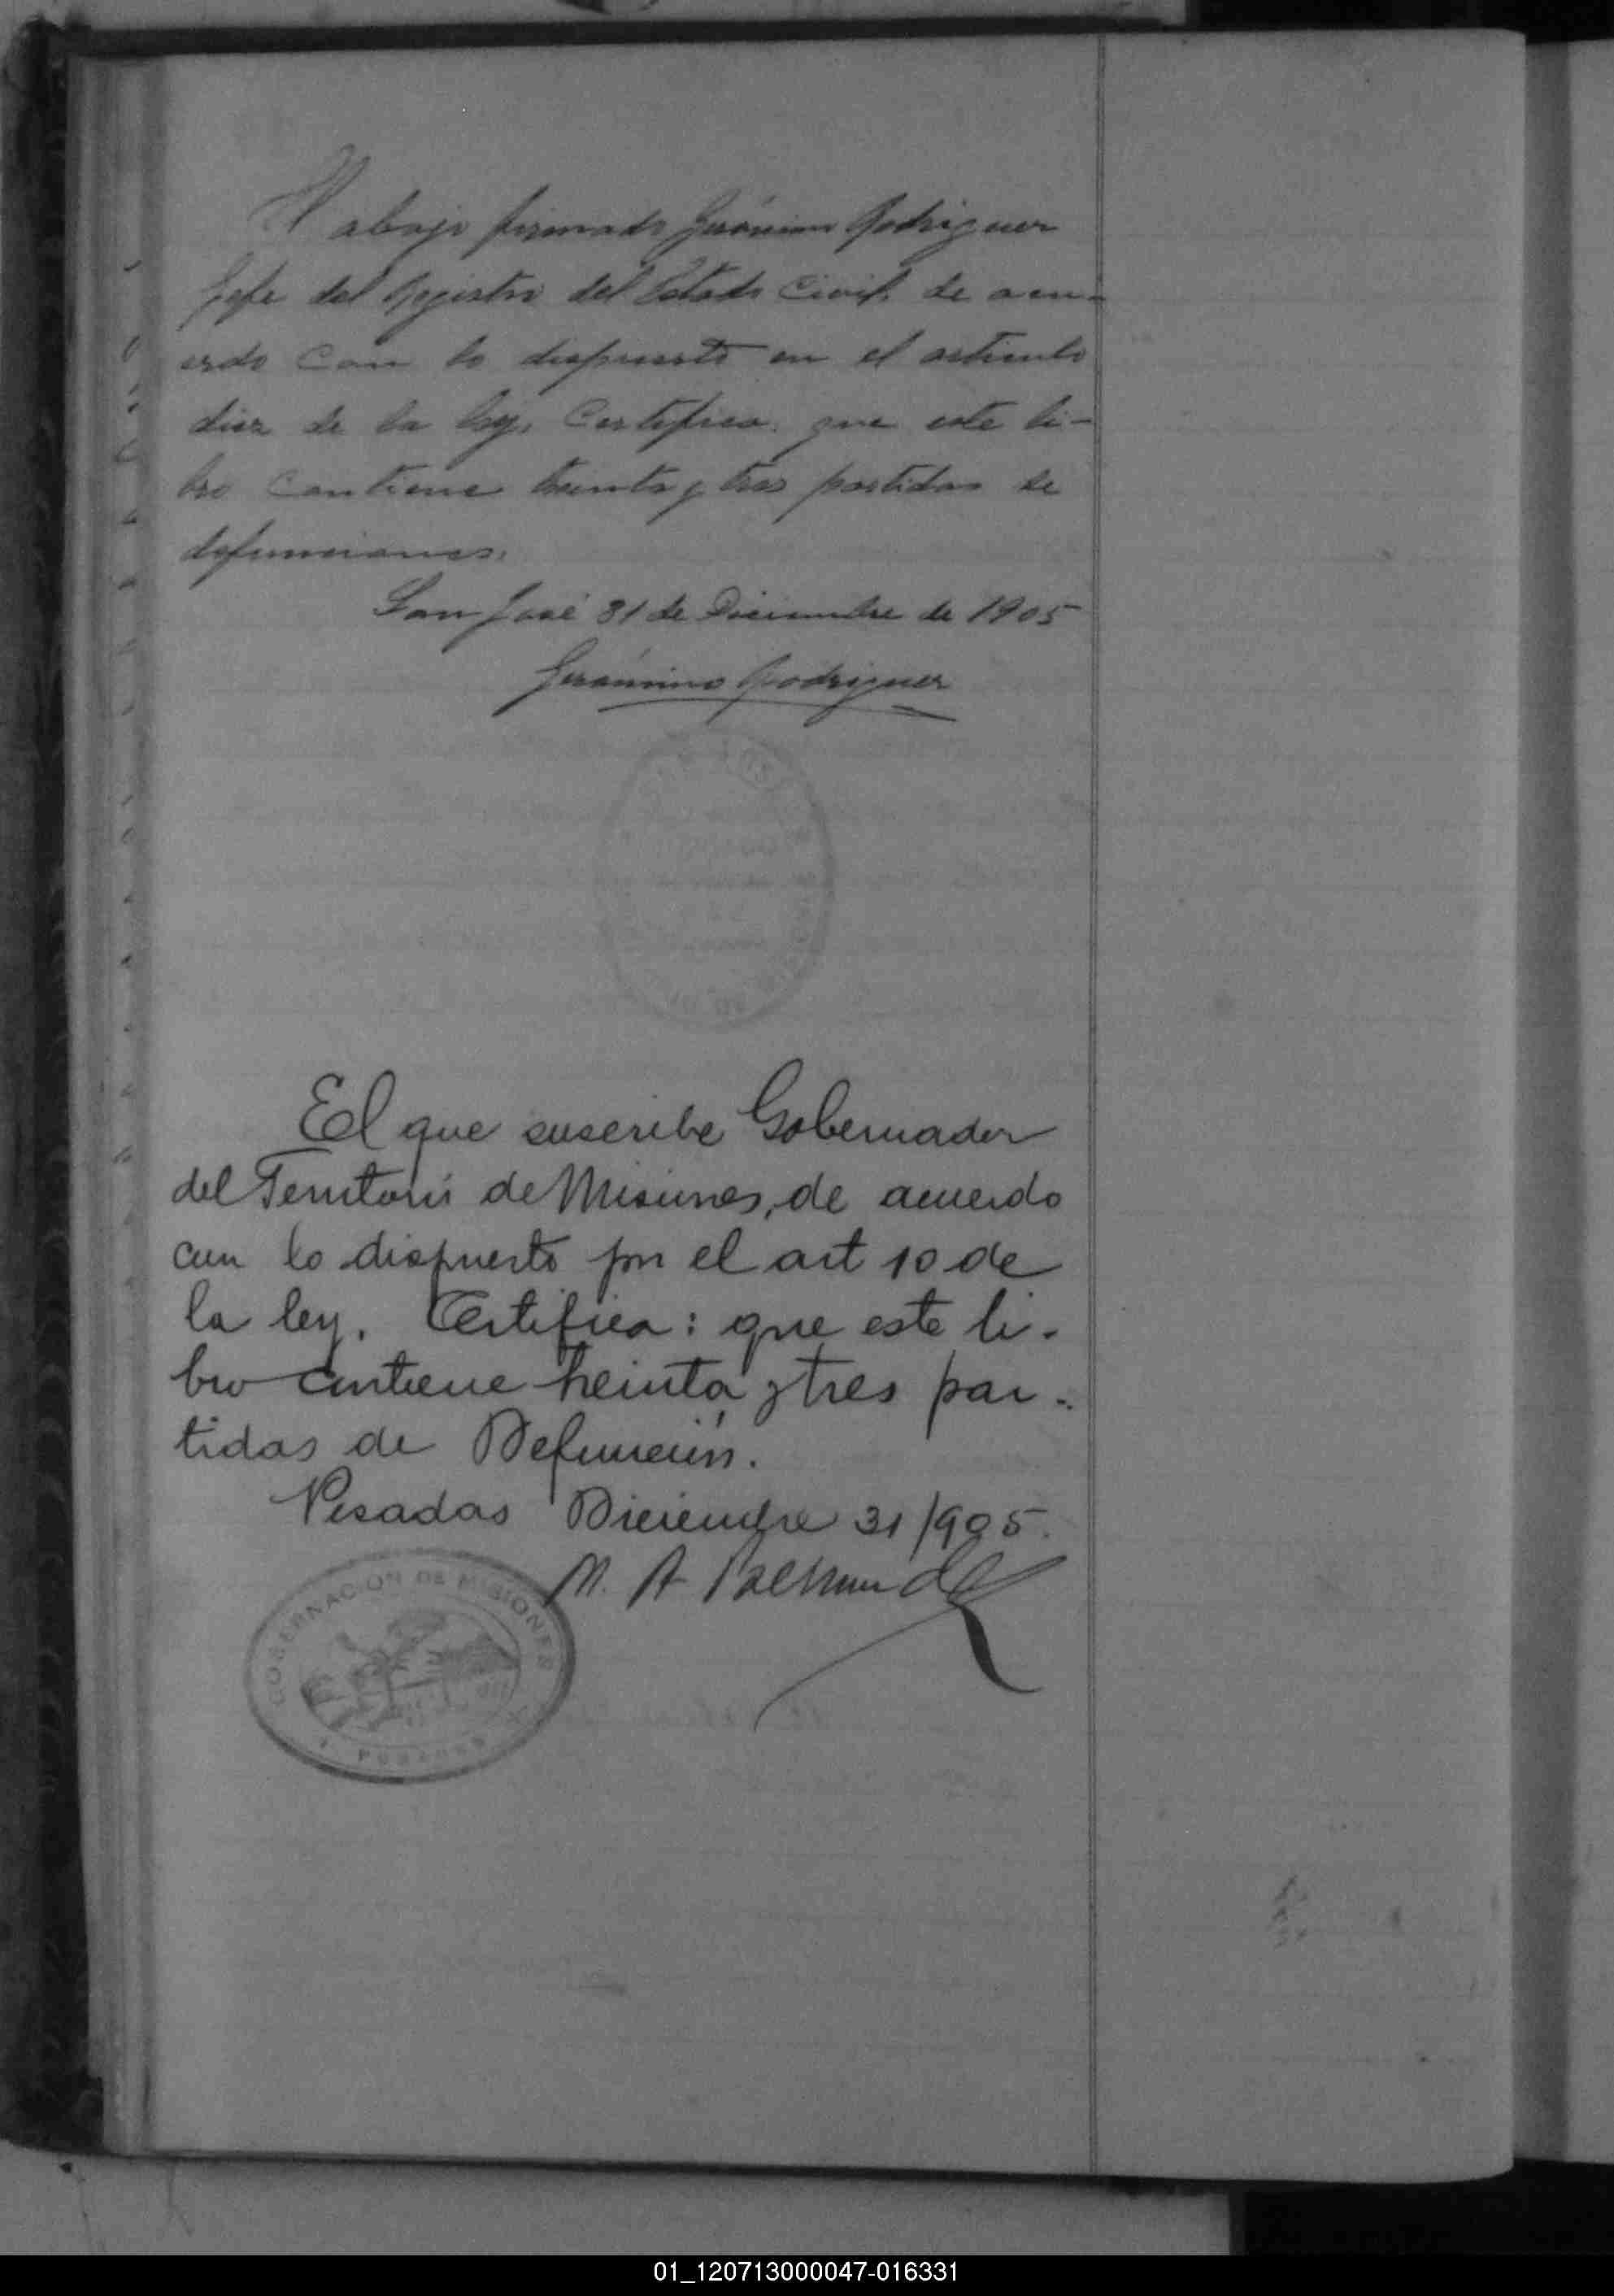 El abajo firmado Gerónimo Rodriguez
Jefe del Registro del Estado Civil, de acu-
erdo con lo dispuesto en el articulo
diez de la ley, Certifica: que este li-
bro contiene treinta y tres partidas de
defunciones.
San José 31 de Diciembre de 1905
Gerónimo Rodriguez
El que suscribe Gobernador
del Territorio de Misiones, de acuerdo
con lo dispuesto por el art 10 de
la ley. Certifica: que este li-
bro contiene treinta y tres par-
tidas de Defunción.
Posadas Diciembre 31/905.
GOBERNACION DE MISIONES
POSADAS
01_120713000047-016331